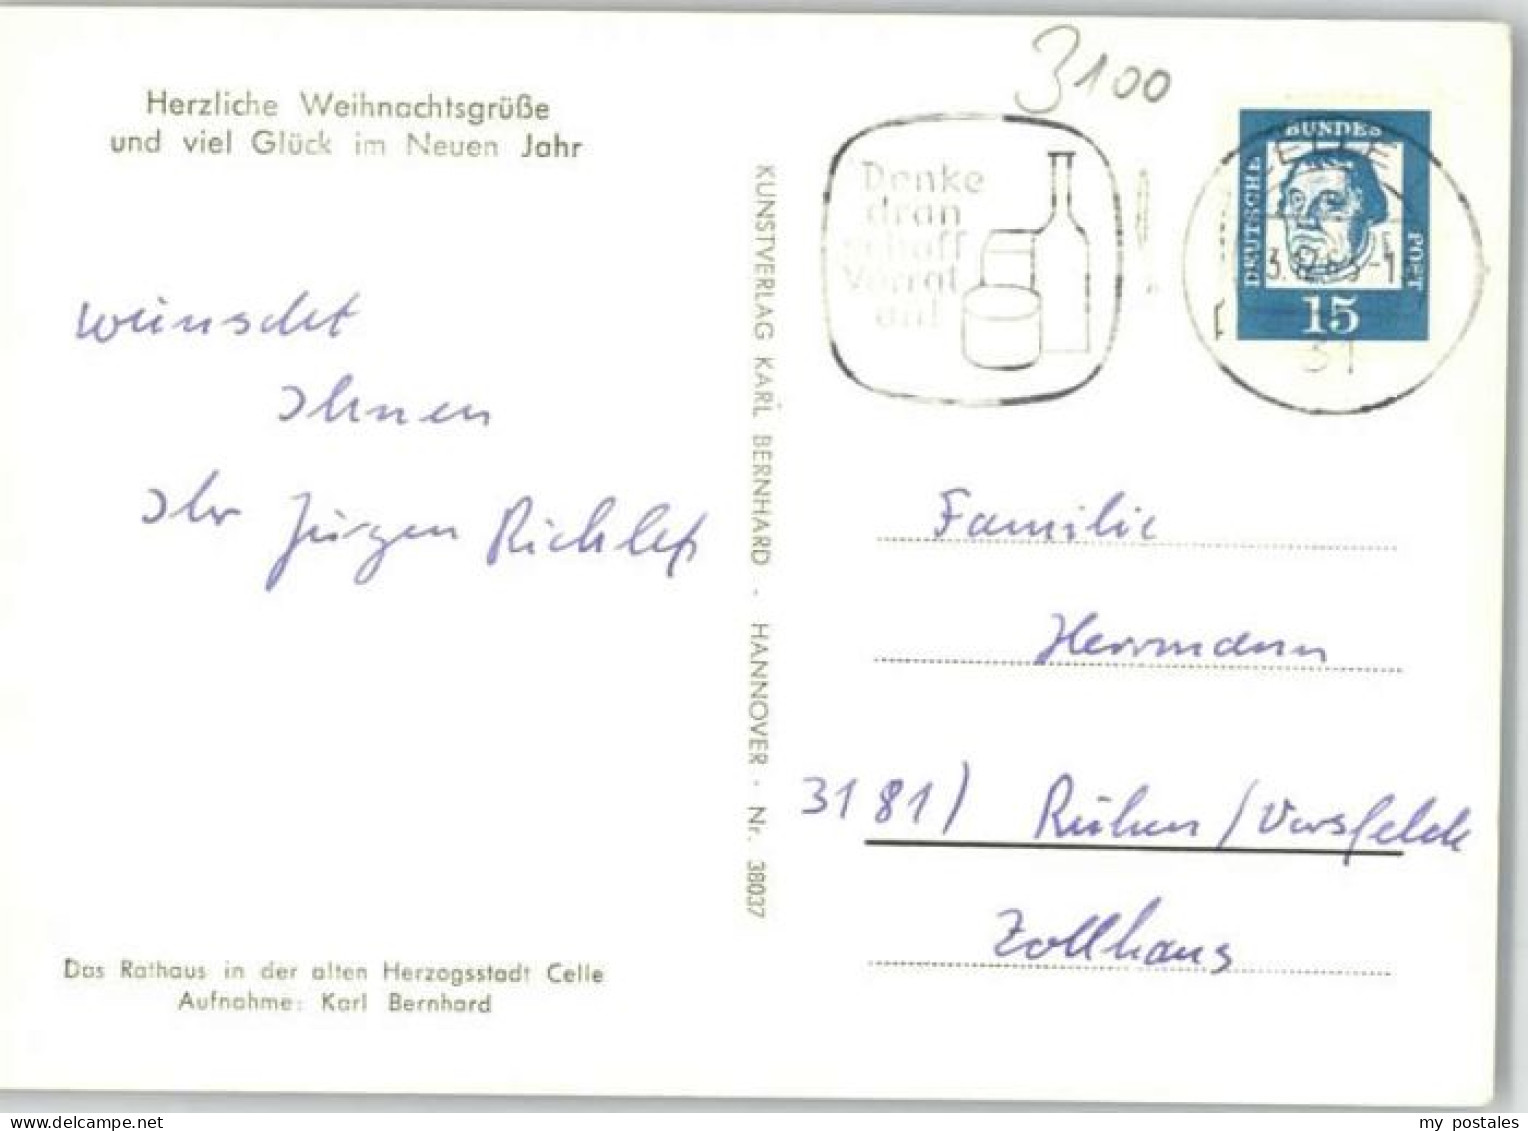 Herzliche Weihnachtsgrüße
und viel Glück im Neuen Jahr
wünscht
Ihnen
Ihr Jürgen
Das Rathaus in der alten Herzogsstadt Celle
Aufnahme: Karl Bernhard
KUNSTVERLAG KARL BERNHARD - HANNOVER - Nr. 38037
3100
Denke
dran
schaff
Vorrat
an!
CELLE
31
DEUTSCHE
BUNDES
POST
15
Familie
Herrmann
3181) Rühen / Vorsfelde
Zollhaus
my postales